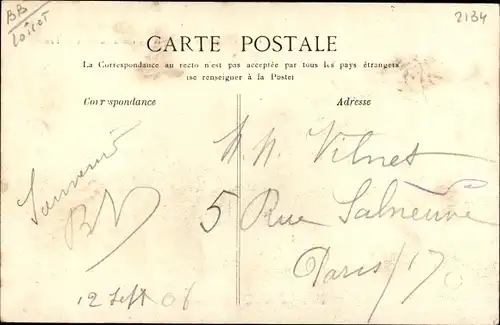 BB
Loiret
2134
CARTE POSTALE
La Correspondance au recto n'est pas acceptée par tous les pays étrangers
(se renseigner à la Poste)
Correspondance
Adresse
Souvenir
12 Sept 06
Vilnet
5 Rue Salneuve
Paris / 17